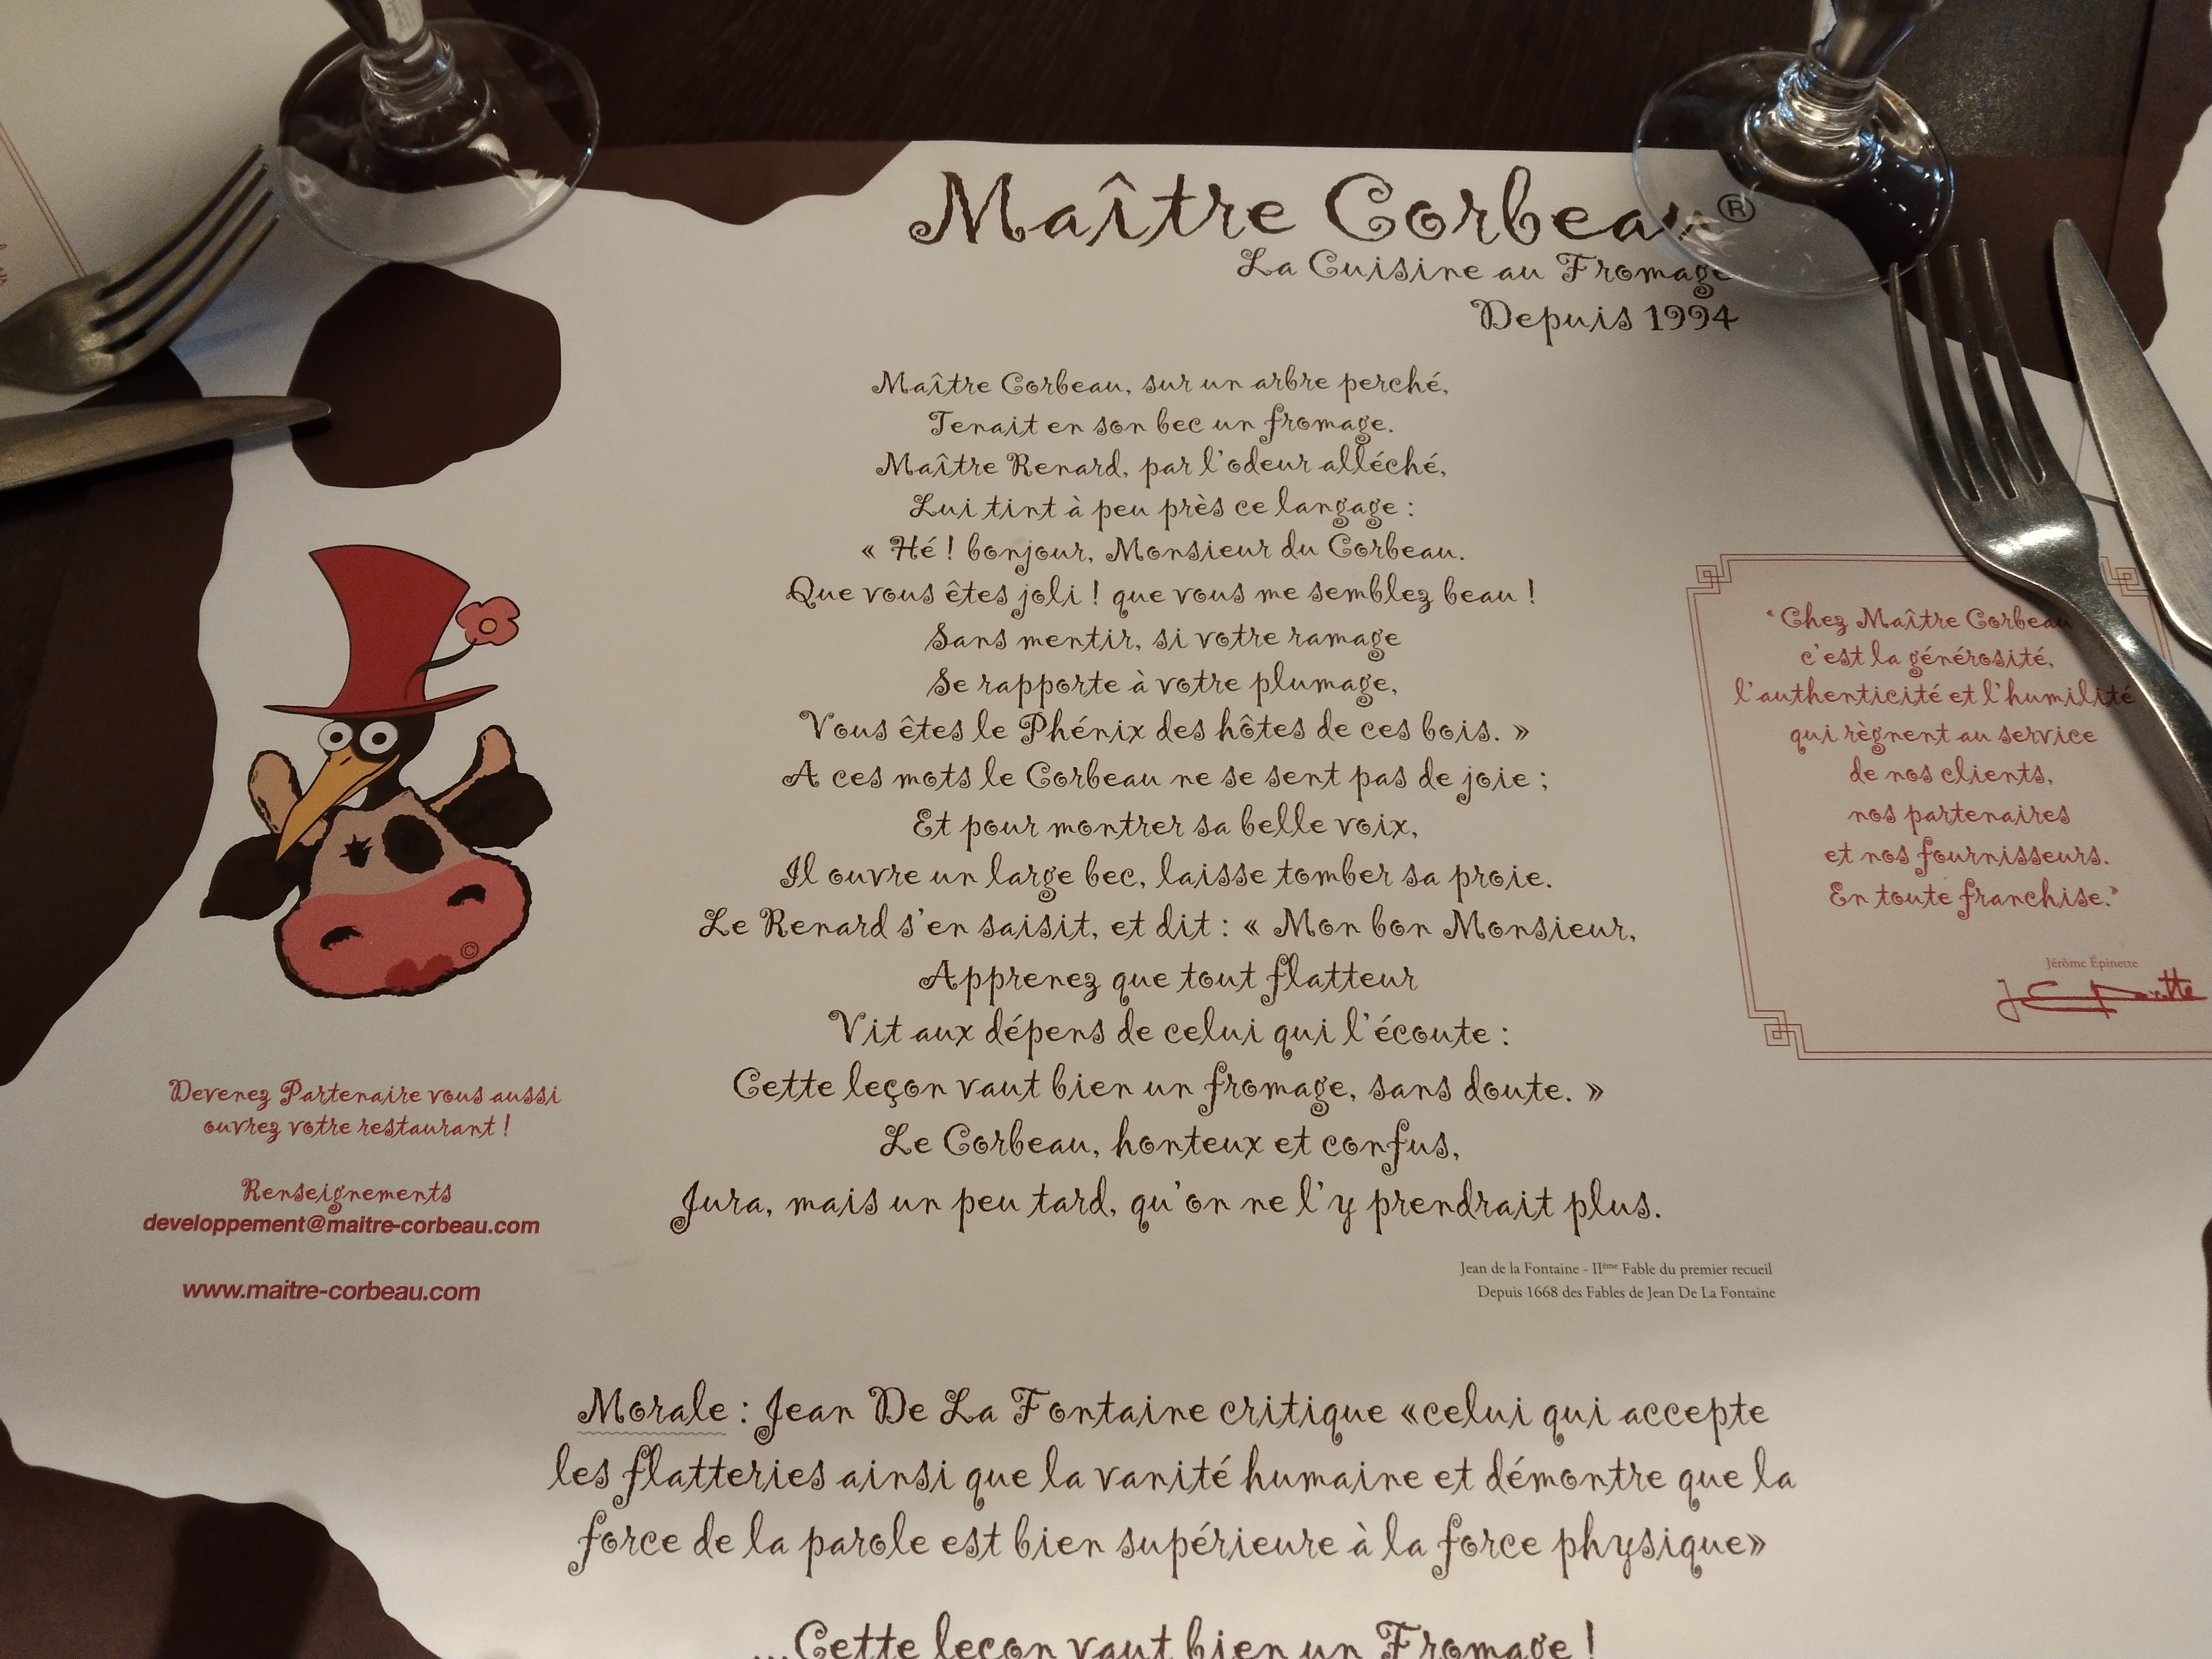 Maître Corbeau®
La Cuisine au Fromage
Depuis 1994
Maître Corbeau, sur un arbre perché,
Tenait en son bec un fromage.
Maître Renard, par l'odeur alléché,
Lui tint à peu près ce langage :
« Hé ! bonjour, Monsieur du Corbeau.
Que vous êtes joli ! que vous me semblez beau !
Sans mentir, si votre ramage
Se rapporte à votre plumage,
Vous êtes le Phénix des hôtes de ces bois. »
A ces mots le Corbeau ne se sent pas de joie ;
Et pour montrer sa belle voix,
Il ouvre un large bec, laisse tomber sa proie.
Le Renard s'en saisit, et dit : « Mon bon Monsieur,
Apprenez que tout flatteur
Vit aux dépens de celui qui l'écoute :
Cette leçon vaut bien un fromage, sans doute. »
Le Corbeau, honteux et confus,
Jura, mais un peu tard, qu'on ne l'y prendrait plus.
Jean de la Fontaine - IIème Fable du premier recueil
Depuis 1668 des Fables de Jean De La Fontaine
"Chez Maître Corbeau
c'est la générosité,
l'authenticité et l'humilité
qui règnent au service
de nos clients,
nos partenaires
et nos fournisseurs.
En toute franchise."
Jérôme Épinette
©
Devenez Partenaire vous aussi
ouvrez votre restaurant !
Renseignements
developpement@maitre-corbeau.com
www.maitre-corbeau.com
Morale : Jean De La Fontaine critique «celui qui accepte
les flatteries ainsi que la vanité humaine et démontre que la
force de la parole est bien supérieure à la force physique»
...Cette leçon vaut bien un Fromage !